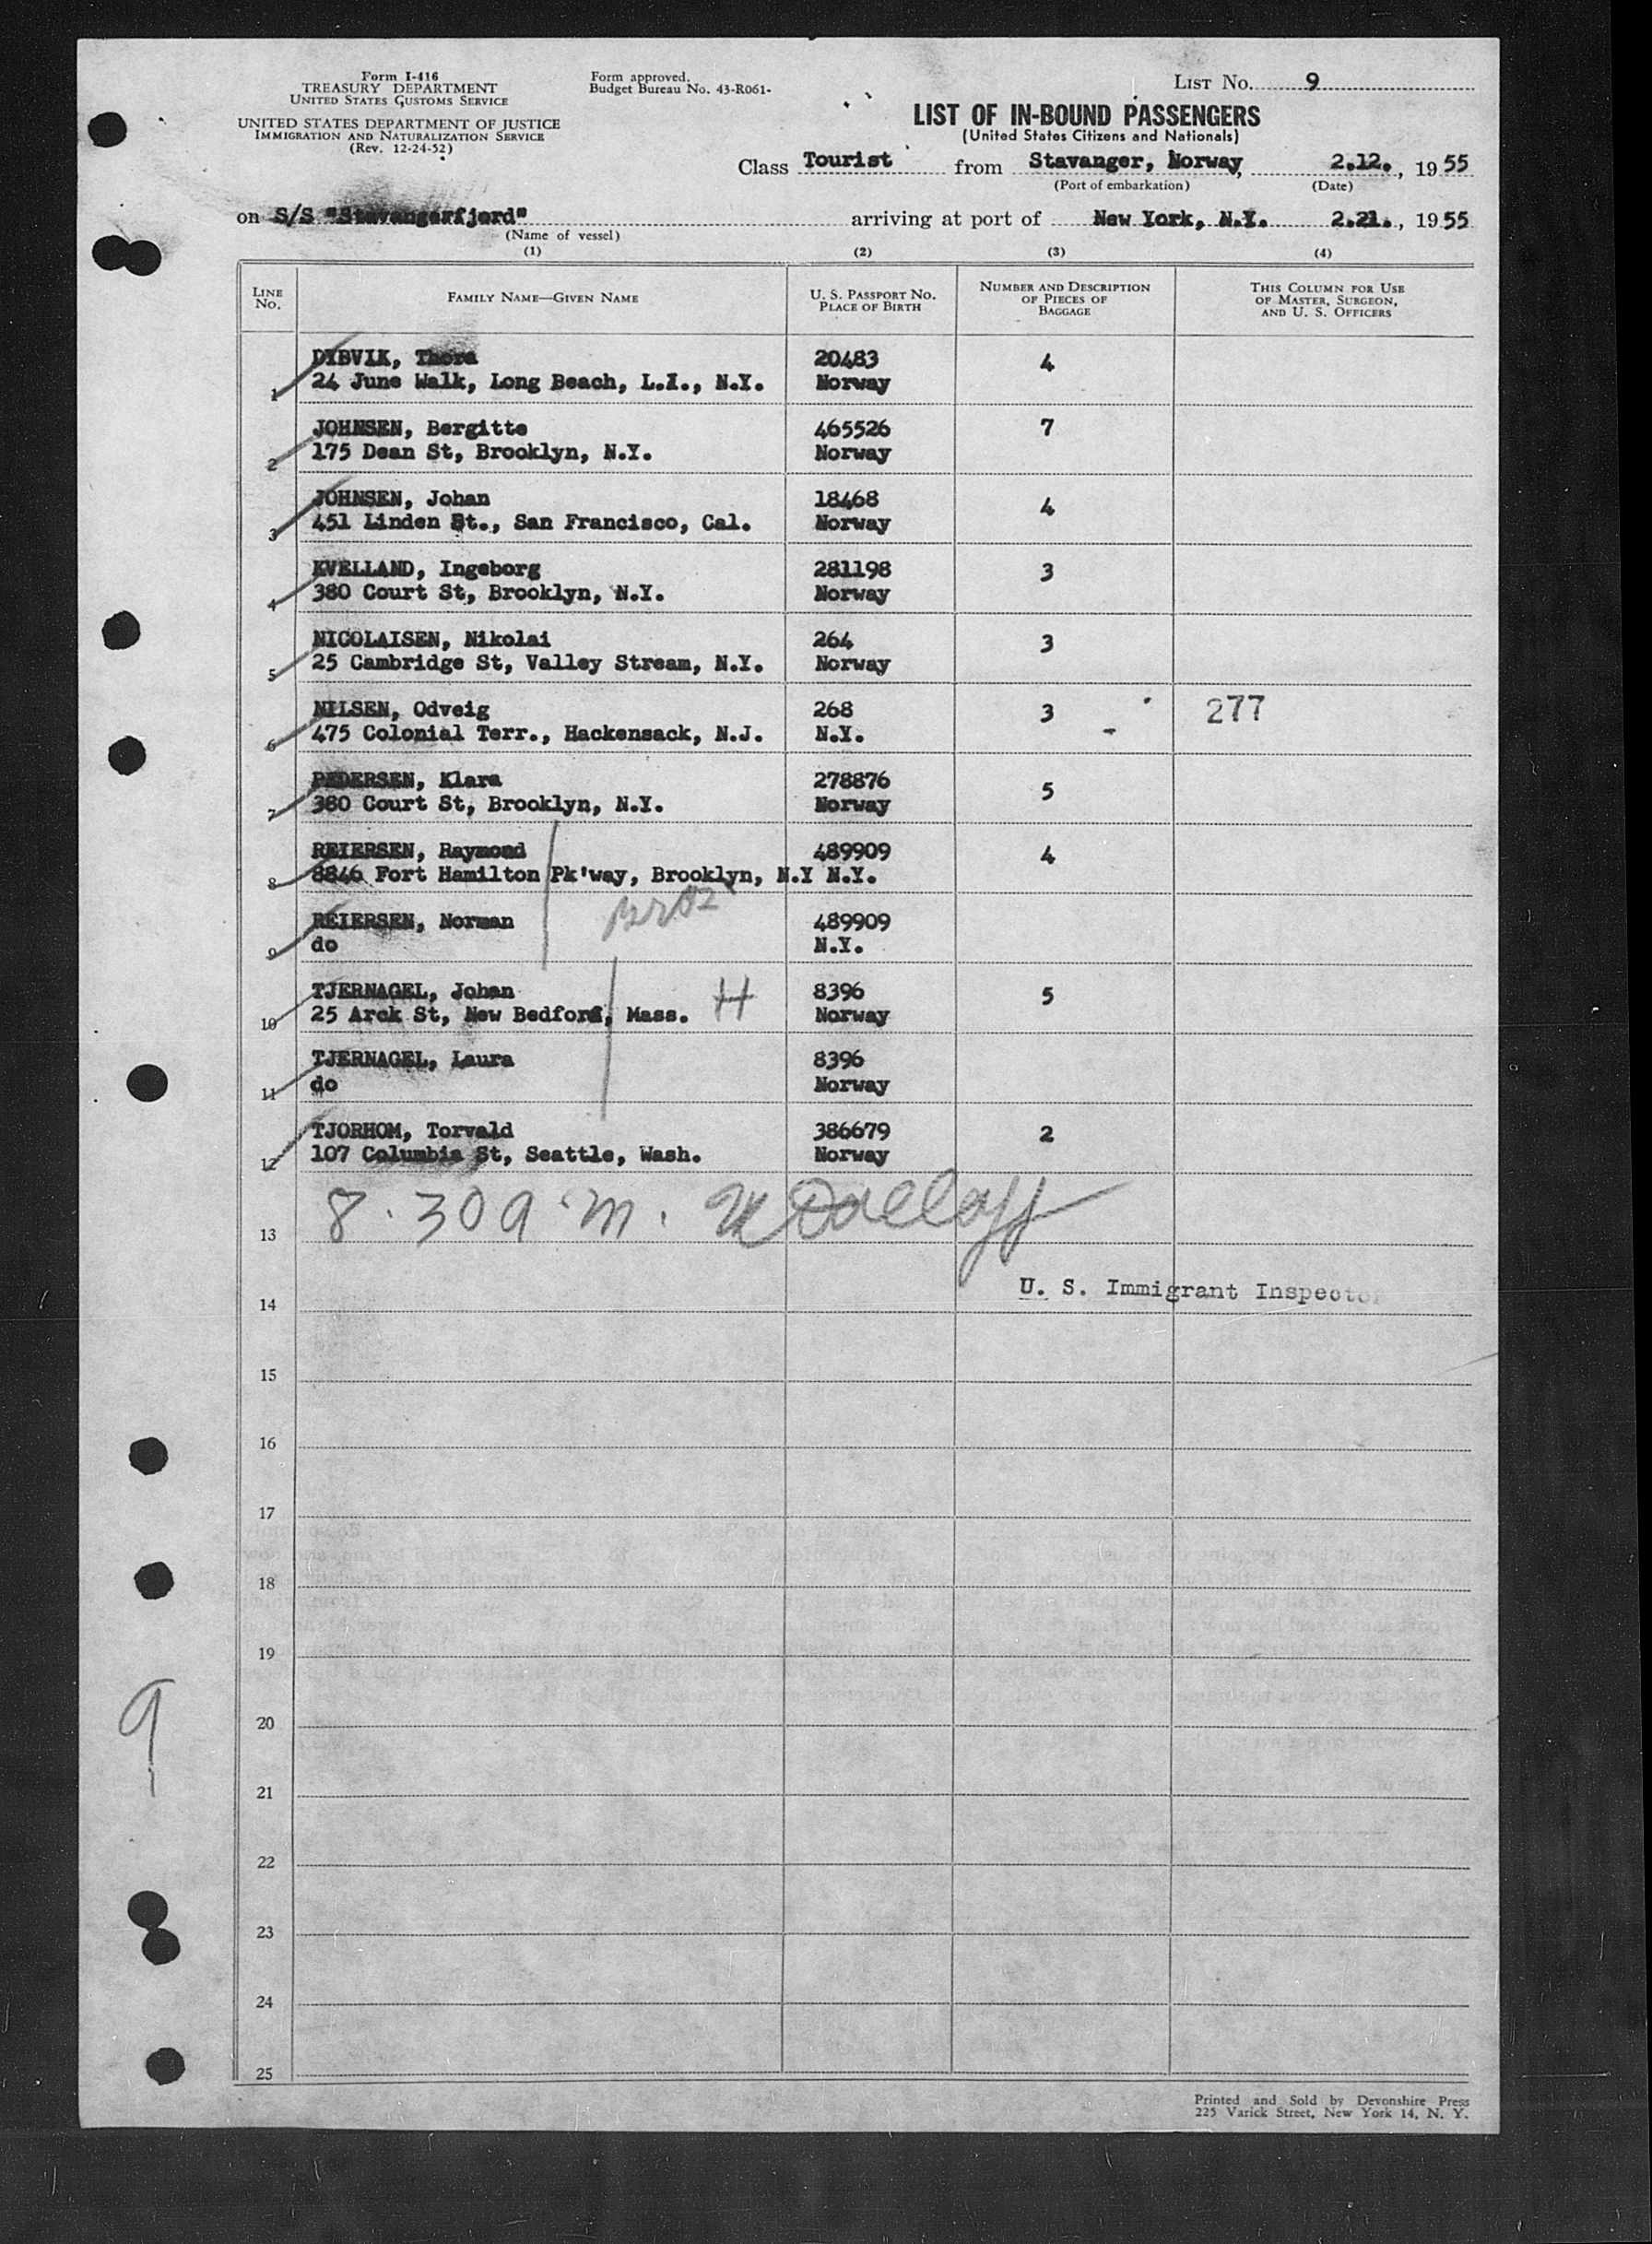 Form I-416
TREASURY DEPARTMENT
UNITED STATES CUSTOMS SERVICE
UNITED STATES DEPARTMENT OF JUSTICE
IMMIGRATION AND NATURALIZATION SERVICE
(Rev. 12-24-52)
Form approved.
Budget Bureau No. 43-R061-
LIST No. 9
LIST OF IN-BOUND PASSENGERS
(United States Citizens and Nationals)
Class Tourist from Stavanger, Norway, 2.12., 1955
(Port of embarkation) (Date)
on S/S "Stavangerfjord" arriving at port of New York, N.Y. 2.21., 1955
(Name of vessel)
(1) (2) (3) (4)
LINE No. FAMILY NAME—GIVEN NAME U. S. PASSPORT No. PLACE OF BIRTH NUMBER AND DESCRIPTION OF PIECES OF BAGGAGE THIS COLUMN FOR USE OF MASTER, SURGEON, AND U. S. OFFICERS
DYBVIK, Thora 20483 4
1 24 June Walk, Long Beach, L.I., N.Y. Norway
JOHNSEN, Bergitte 465526 7
2 175 Dean St, Brooklyn, N.Y. Norway
JOHNSEN, Johan 18468 4
3 451 Linden St., San Francisco, Cal. Norway
KVELLAND, Ingeborg 281198 3
4 380 Court St, Brooklyn, N.Y. Norway
NICOLAISEN, Nikolai 264 3
5 25 Cambridge St, Valley Stream, N.Y. Norway
NILSEN, Odveig 268 3 277
6 475 Colonial Terr., Hackensack, N.J. N.Y.
PEDERSEN, Klara 278876 5
7 380 Court St, Brooklyn, N.Y. Norway
REIERSEN, Raymond 489909 4
8 8846 Fort Hamilton Pk'way, Brooklyn, N.Y N.Y.
REIERSEN, Norman 489909
9 do N.Y.
TJERNAGEL, Johan 8396 5
10 25 Arck St, New Bedford, Mass. H Norway
TJERNAGEL, Laura 8396
11 do Norway
TJORHOM, Torvald 386679 2
12 107 Columbia St, Seattle, Wash. Norway
8.30 a.m.
13
U. S. Immigrant Inspector
14
15
16
17
18
19
9
20
21
22
23
24
25
Printed and Sold by Devonshire Press
225 Varick Street, New York 14, N. Y.